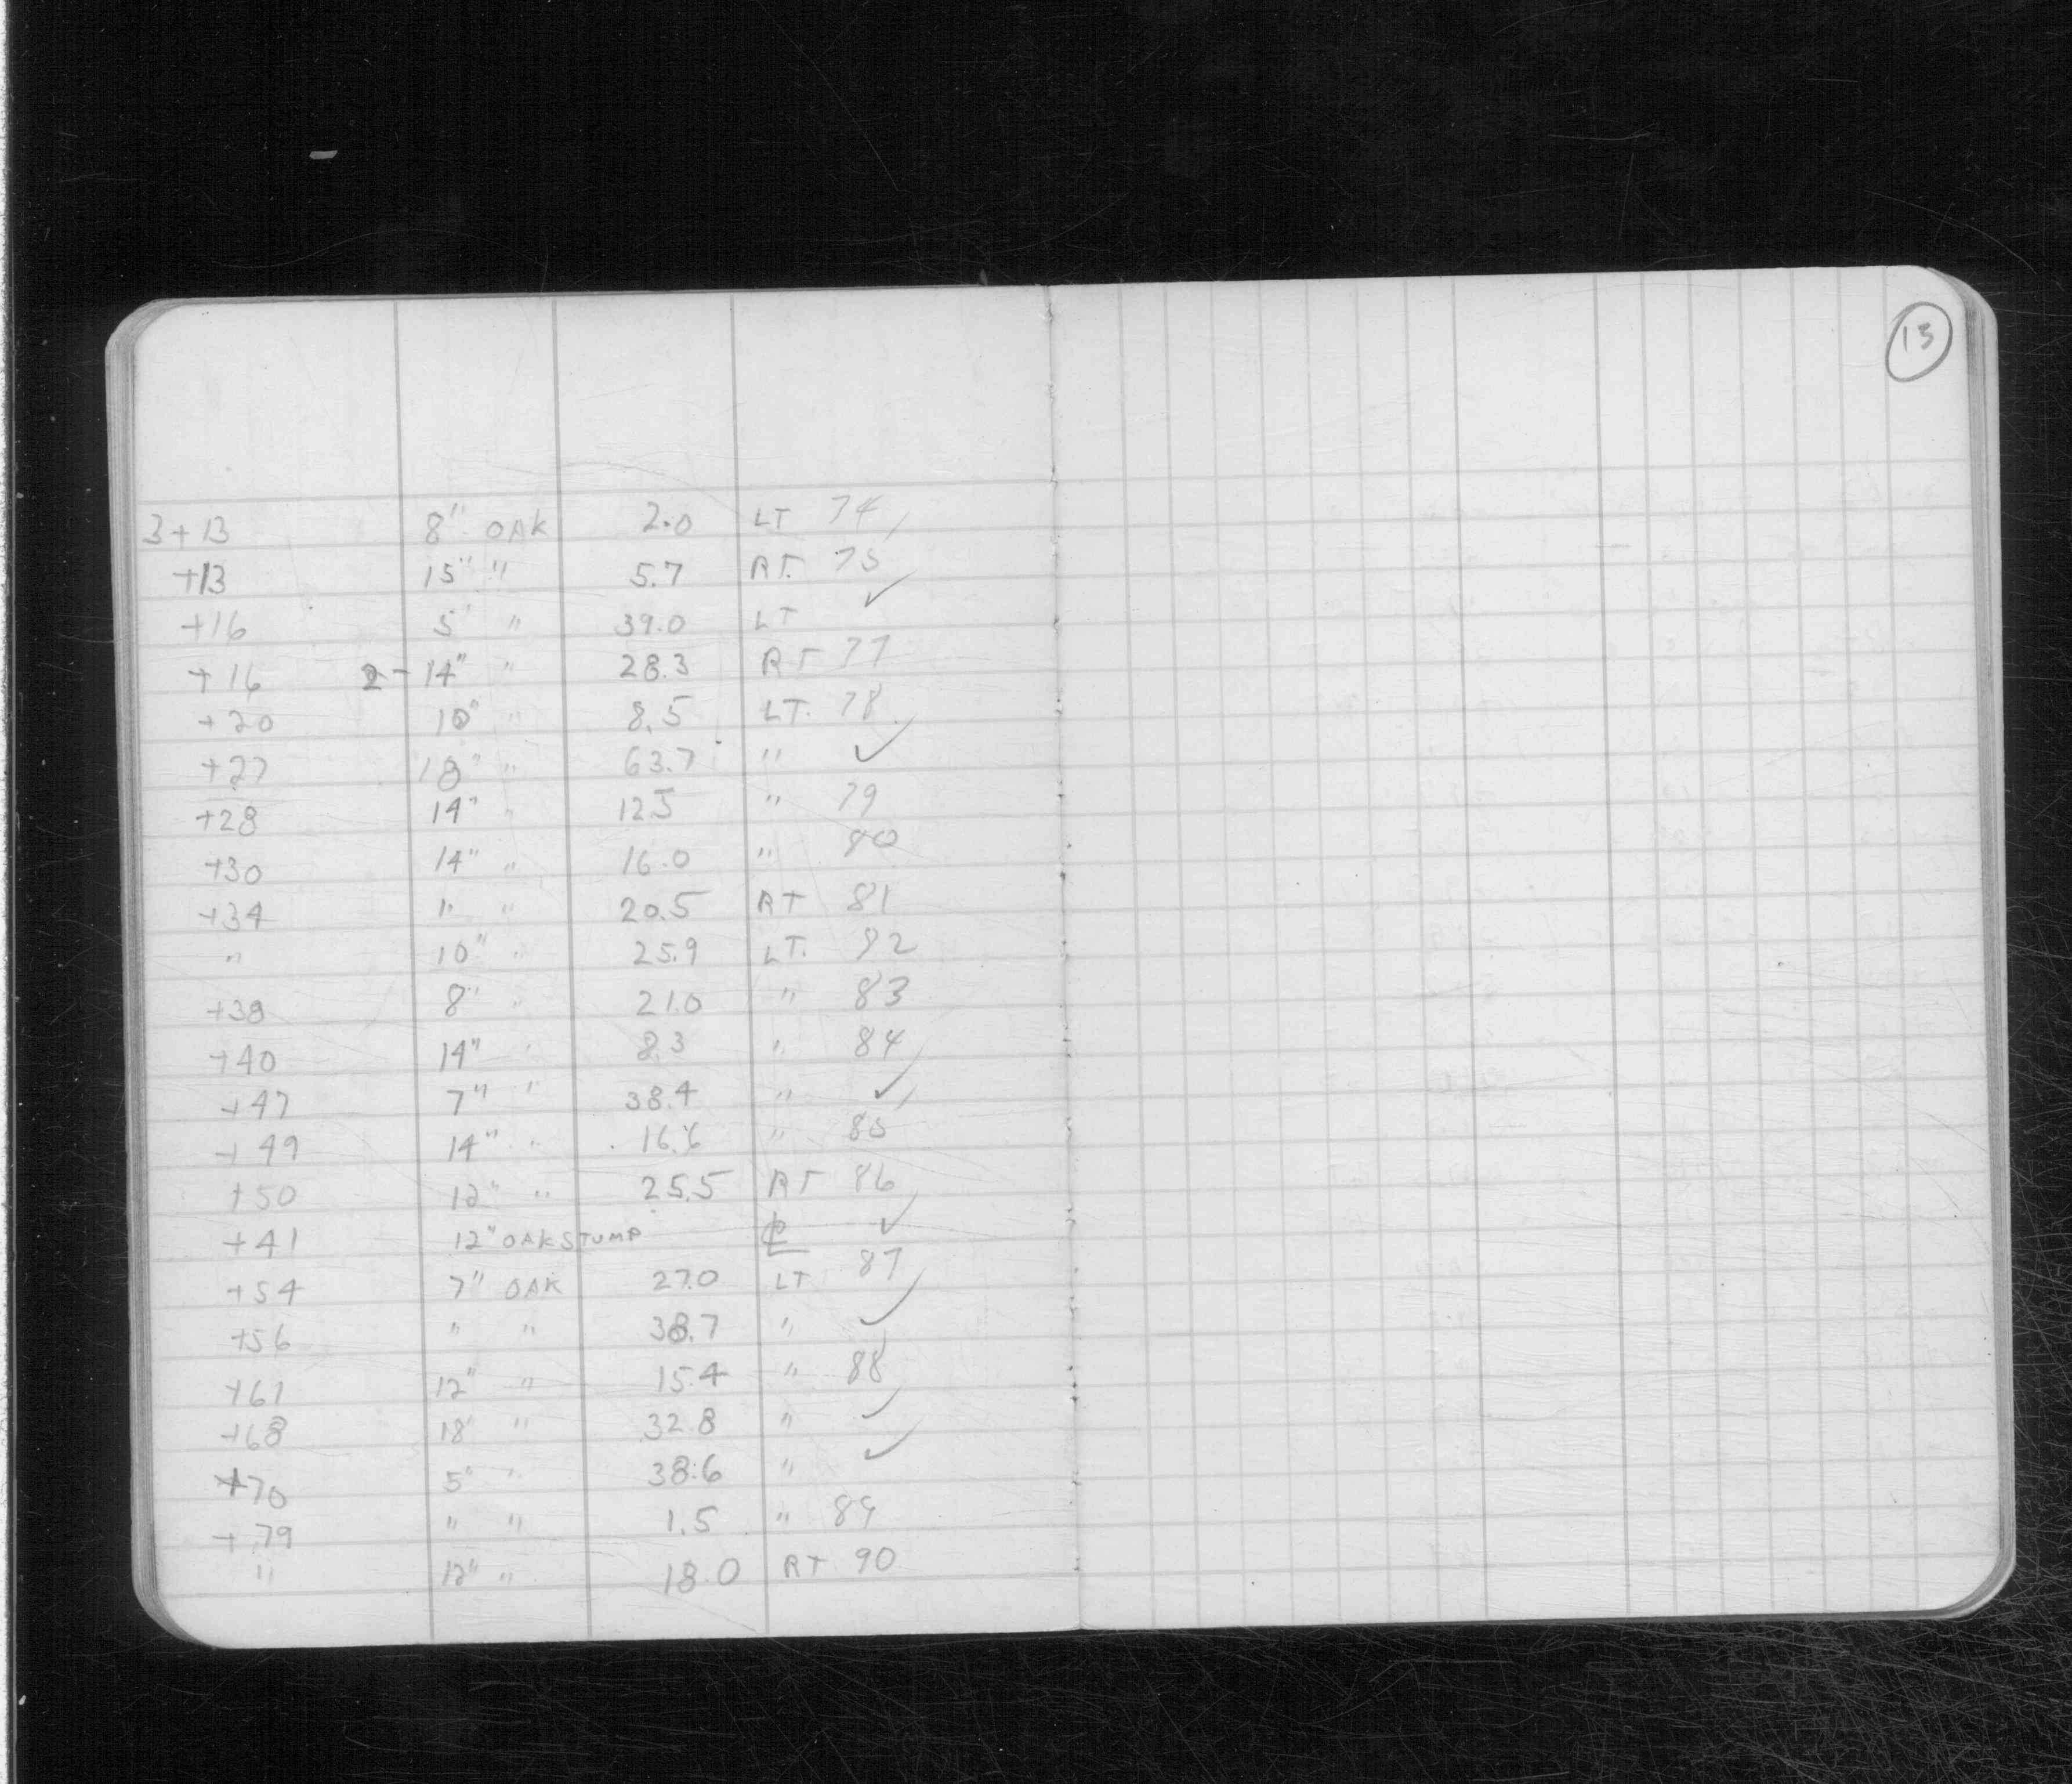 13
3+13 8" OAK 2.0 LT 74
+13 15" " 5.7 RT. 75
+16 5" " 39.0 LT ✓
+16 2-14" " 28.3 RT 77
+20 10" " 8.5 LT. 78
+27 18" " 63.7 " ✓
+28 14" " 12.5 " 79
+30 14" " 16.0 " 80
+34 " " 20.5 RT 81
" 10" " 25.9 LT. 82
+38 8" " 21.0 " 83
+40 14" " 8.3 " 84
+47 7" " 38.4 " ✓
+49 14" " 16.6 " 85
+50 12" " 25.5 RT 86
+41 12" OAK STUMP ℄ ✓
+54 7" OAK 27.0 LT 87
+56 " " 38.7 " ✓
+61 12" " 15.4 " 88
+68 18" " 32.8 " ✓
+70 5" " 38.6 " ✓
+79 " " 1.5 " 89
" 12" " 18.0 RT 90